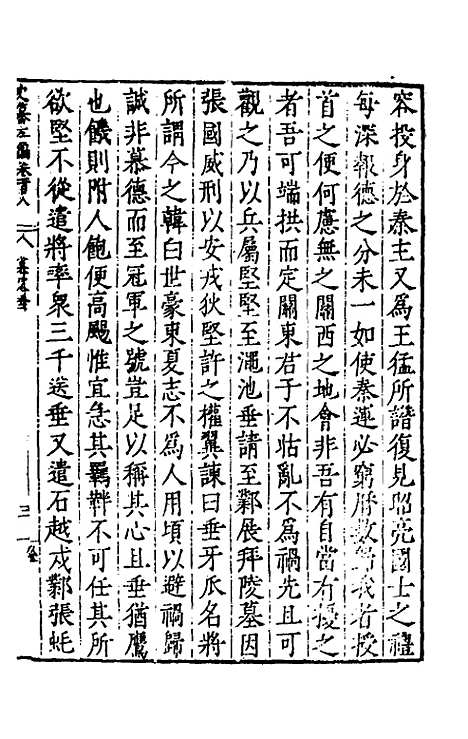 容投身於秦主又為王猛所譖復見昭亮國士之禮
每深報德之分未一如使秦運必窮曆數歸我者授
首之便何慮無之關西之地會非吾有自當有擾之
者吾可端拱而定關東君子不怙亂不為禍先且可
觀之乃以兵屬堅堅至澠池垂請至鄴展拜陵墓因
張國威刑以安戎狄堅許之權翼諫曰垂牙爪名將
所謂今之韓白世豪東夏志不為人用頃以避禍歸
誠非慕德而至冠軍之號豈足以稱其心且垂猶鷹
也饑則附人飽便高颺惟宜急其羈靽不可任其所
欲堅不從遣將率眾三千送垂又遣石越戍鄴張蚝
史纂左編卷百八